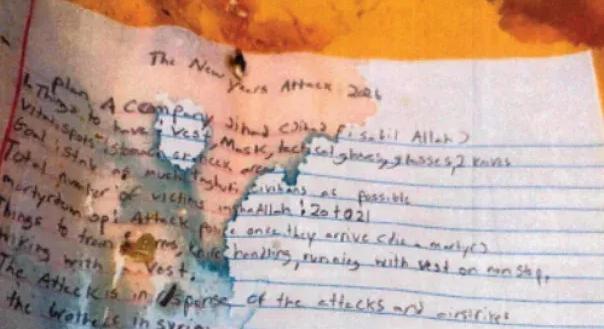 The New Years Attack 2026
plan A Jihad (Jihad fi sabil Allah)
Things to have : vest, Mask, tactical gloves, glasses, 2 knives
Vital spots is back or neck area
Goal : stab as much civilians as possible
Total number of victims inshaAllah : 20 to 21
martyrdom op: Attack police once they arrive (die a martyr)
Things to train : knife handling, running with vest on non stop,
Hiking with vest.
The Attack is in of the attacks and airstrikes
the brothers in syria